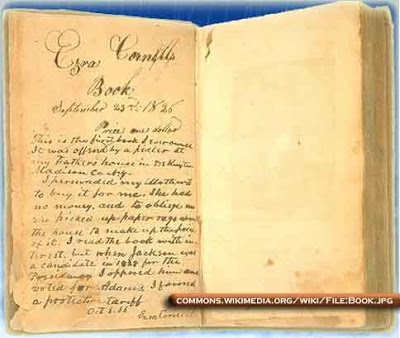 Ezra Cornell's
Book
September 23rd 1826
Price one dollar
This is the first book I ever owned
It was offered by a pedler at
my Fathers house in DeRuyter
Madison Co Ny.
I persuaded my Mother
to buy it for me. She had
no money, and to oblige me
she picked up paper rags about
the house to make up the price
of it. I read the book with in-
terest, but when Jackson was
a candidate in 1828 for the
Presidency I opposed him and
voted for Adams, I favored
a protective tariff
Ezra Cornell
COMMONS.WIKIMEDIA.ORG/WIKI/FILE:BOOK.JPG